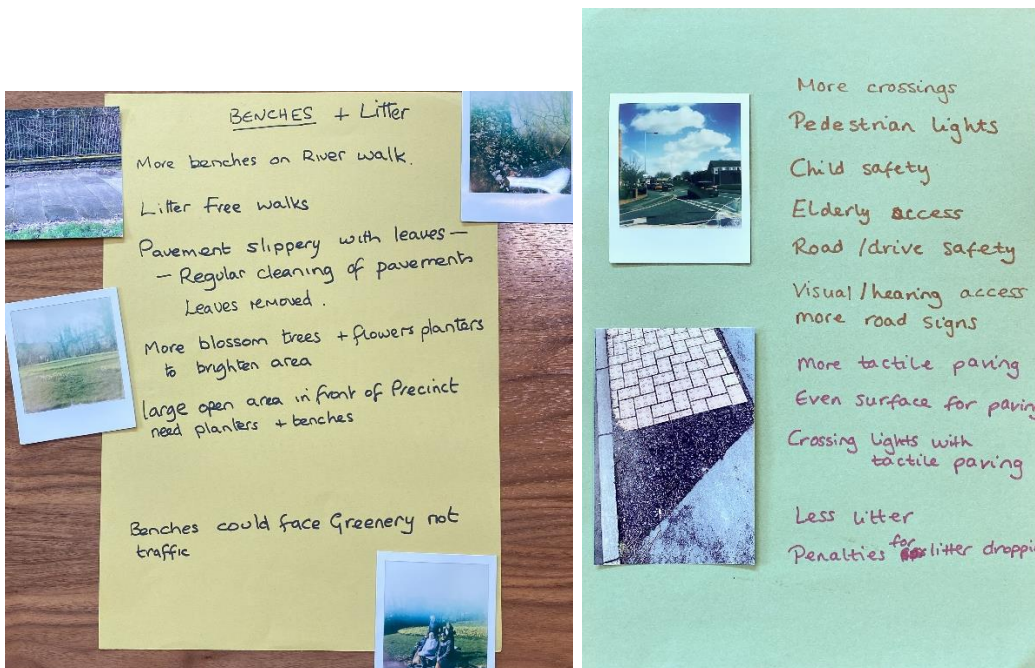 BENCHES + Litter
More benches on River walk.
Litter Free walks
Pavement slippery with leaves —
— Regular cleaning of pavements
Leaves removed.
More blossom trees + flowers planters
to brighten area
large open area in front of Precinct
need planters + benches
Benches could face Greenery not
traffic
More crossings
Pedestrian lights
Child safety
Elderly access
Road / drive safety
Visual / hearing access
more road signs
More tactile paving
Even surface for paving
Crossing lights with
tactile paving
Less litter
Penalties for litter droppi